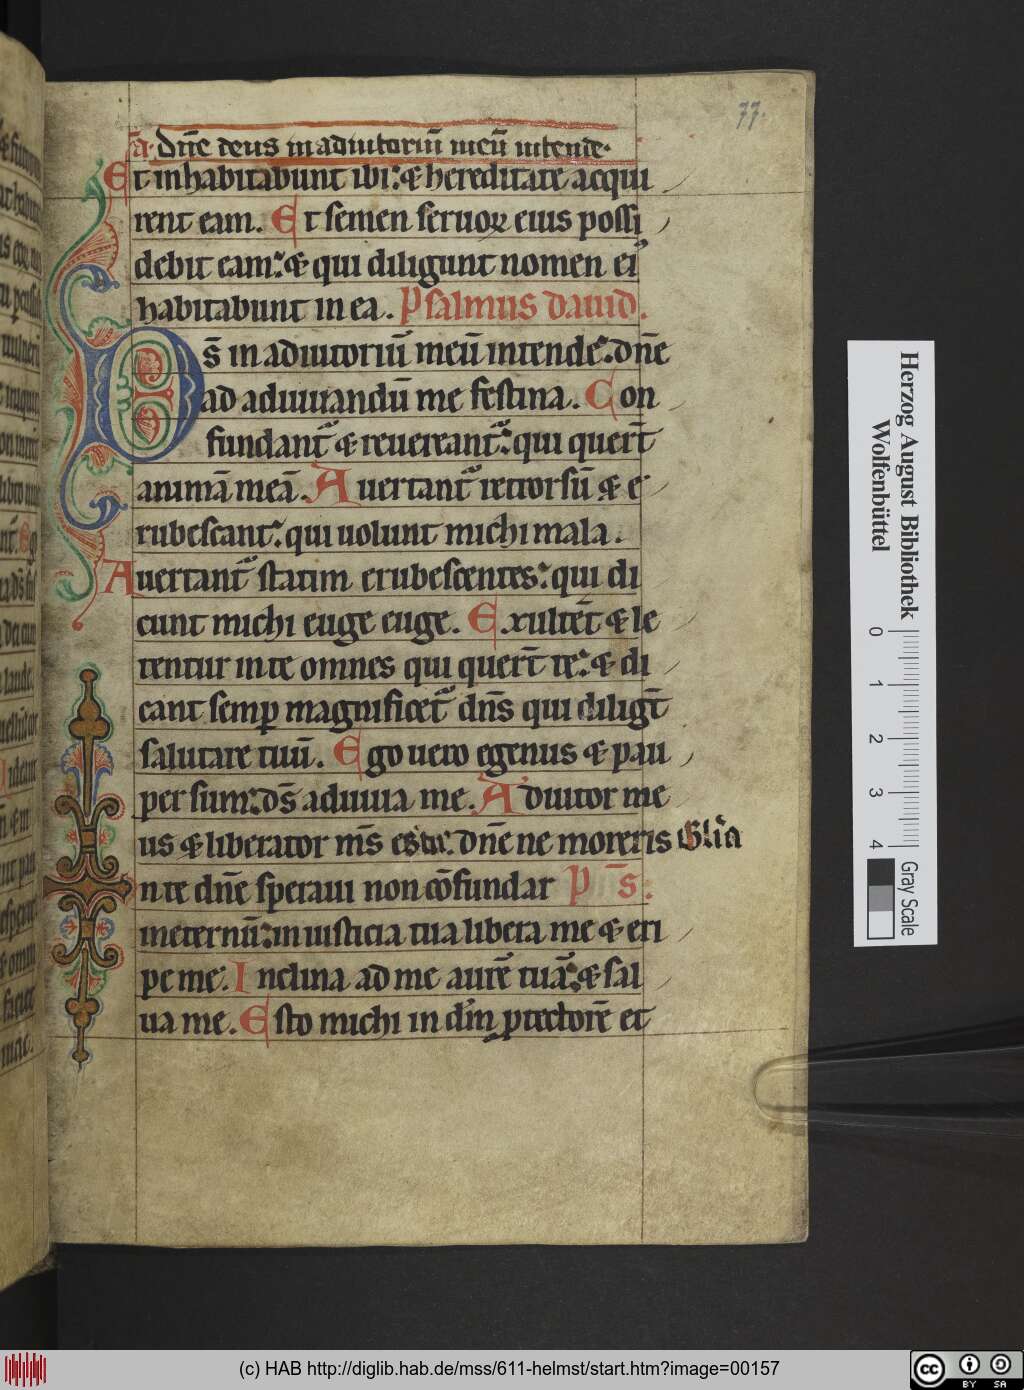 77.
a. Dn̄e deus in adiutoriū meū intende.
Et inhabitabunt ibi: & hereditate acqui
rent eam. Et semen seruoꝝ eius possi
debit eam: & qui diligunt nomen ei᷒
habitabunt in ea. Psalmus dauid.
Ds̄ in adiutoriū meū intende: dn̄e
ad adiuuandū me festina. Con
fundant᷑ & reuereant᷑: qui quer̄t
animā meā. Auertant᷑ retrorsū & e
rubescant: qui uolunt michi mala.
Auertant᷑ statim erubescentes: qui di
cunt michi euge euge. Exultēt & le
tentur in te omnes qui quer̄t te: & di
cant semꝑ magnificet᷑ dn̄s qui diligt̄
salutare tuū. Ego uero egenus & pau
per sum: ds̄ adiuua me. Adiutor me
us & liberator ms̄ es tu: dn̄e ne moreris Gl̄ia
In te dn̄e speraui non cōfundar P s̄.
in eternū: in iusticia tua libera me & eri
pe me. Inclina ad me aurē tuā: & sal
ua me. Esto michi in dm̄ ꝓtectorē et
Herzog August Bibliothek
Wolfenbüttel
0 1 2 3 4
Gray Scale
(c) HAB http://diglib.hab.de/mss/611-helmst/start.htm?image=00157
cc BY SA